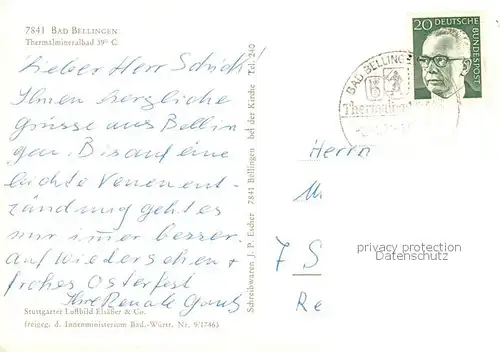 7841 BAD BELLINGEN
Thermalmineralbad 39° C.
Lieber Herr
Ihnen herzliche
Grüsse aus Bellin
gen. Bis auf eine
leichte Venenent-
zündung geht es
mir immer besser.
Auf Wiedersehen +
frohes Osterfest
Ihre Renate
Stuttgarter Luftbild Elsäßer & Co.
freigeg. d. Innenministerium Bad.-Württ. Nr. 9/17463
Schreibwaren J. P. Escher 7841 Bellingen bei der Kirche Tel. 240
20 DEUTSCHE
BUNDESPOST
BAD BELLINGE
Thermalbad
Herrn
7 S
Re
privacy protection
Datenschutz